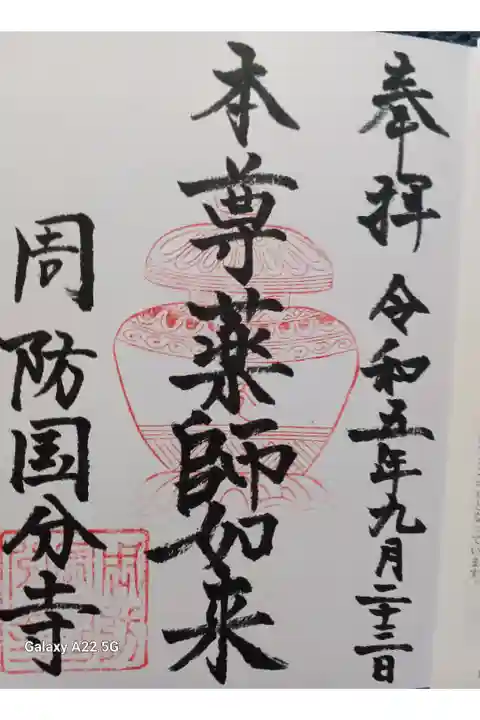 奉拝 令和五年九月二十三日
本尊薬師如来
周防国分寺
Galaxy A22 5G